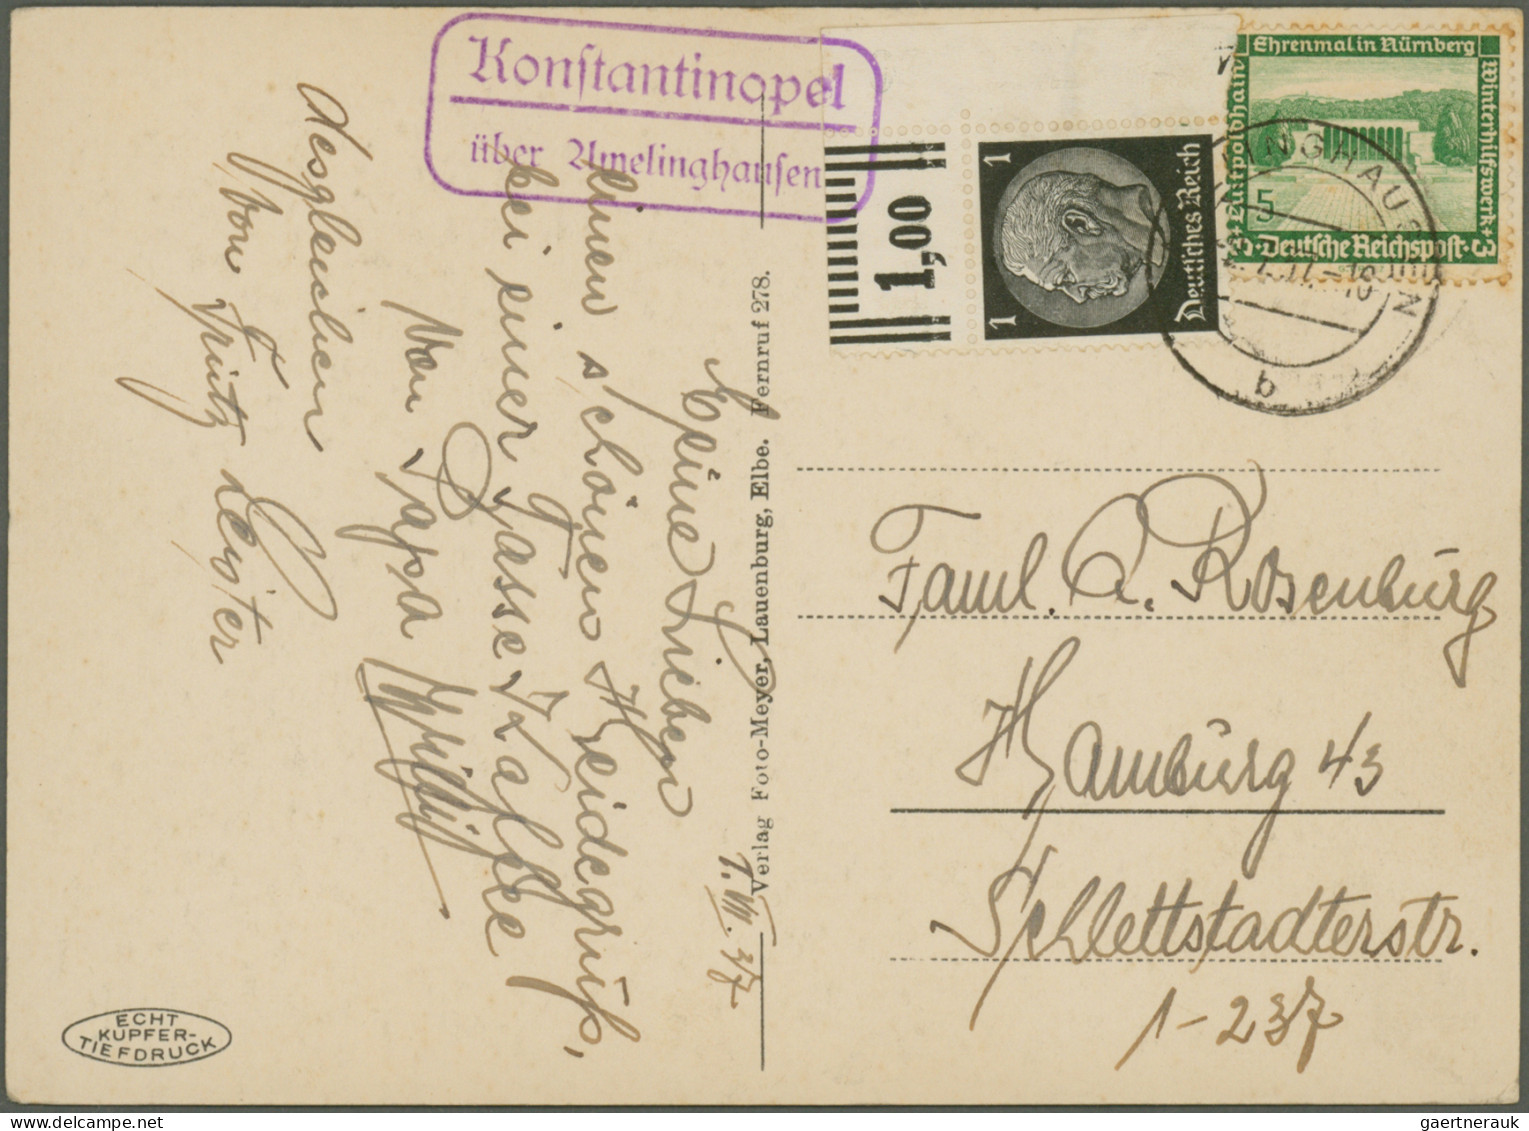 Konstantinopel
über Amelinghausen
1,00
1
1
Deutsches Reich
Ehrenmal in Nürnberg
Luitpoldhain
Winterhilfswerk
5
3 · Deutsche Reichspost · 3
INGHAUSEN
b
1. VII. 37
Meine Lieben
einen schönen Heidegruß,
bei einer Tasse Kaffee
von Papa
Desgleichen
von Fritz Lester
Verlag Foto-Meyer, Lauenburg, Elbe. Fernruf 278.
Faml. A. Rosenburg
Hamburg 43
Schlettstadterstr.
1-237
ECHT
KUPFER-
TIEFDRUCK
gaertnerauk